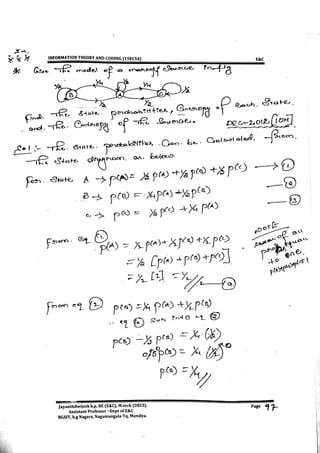 INFORMATION THEORY AND CODING (15EC54) E&C
Give The model of a markoff Source in fig
1/4
1/2 1/2 1/2
A B C
1/4
1/2
Find The State probabilities, Entropy of each State.
and The Entropy of The Source.
DEC-2018 10M
Sol :- The State probabilities Can be Calculated from
The State diagram as below
For State A → p(A) = 1/2 p(A) + 1/2 p(B) + 1/2 p(C) → 1
B → p(B) = 1/4 p(A) + 1/2 p(B) → 2
C → p(C) = 1/2 p(C) + 1/4 p(A) → 3
From eq 1
p(A) = 1/2 p(A) + 1/2 p(B) + 1/2 p(C)
= 1/2 [p(A) + p(B) + p(C)]
= 1/2 [1] = 1/2 → a
note
sum of all
prob equal
to one
p(A)+p(B)+p(C)=1
From eq 2 p(B) = 1/4 p(A) + 1/2 p(B)
eq a Sub into eq 2
p(B) - 1/2 p(B) = 1/4 (1/2)
0.5 p(B) = 1/4 (1/2)
p(B) = 1/4
Jayanthdwijesh h.p, BE (E&C), M.tech (DECS). Page 97
Assistant Professor –Dept of E&C
BGSIT, b.g Nagara, Nagamangala Tq, Mandya.